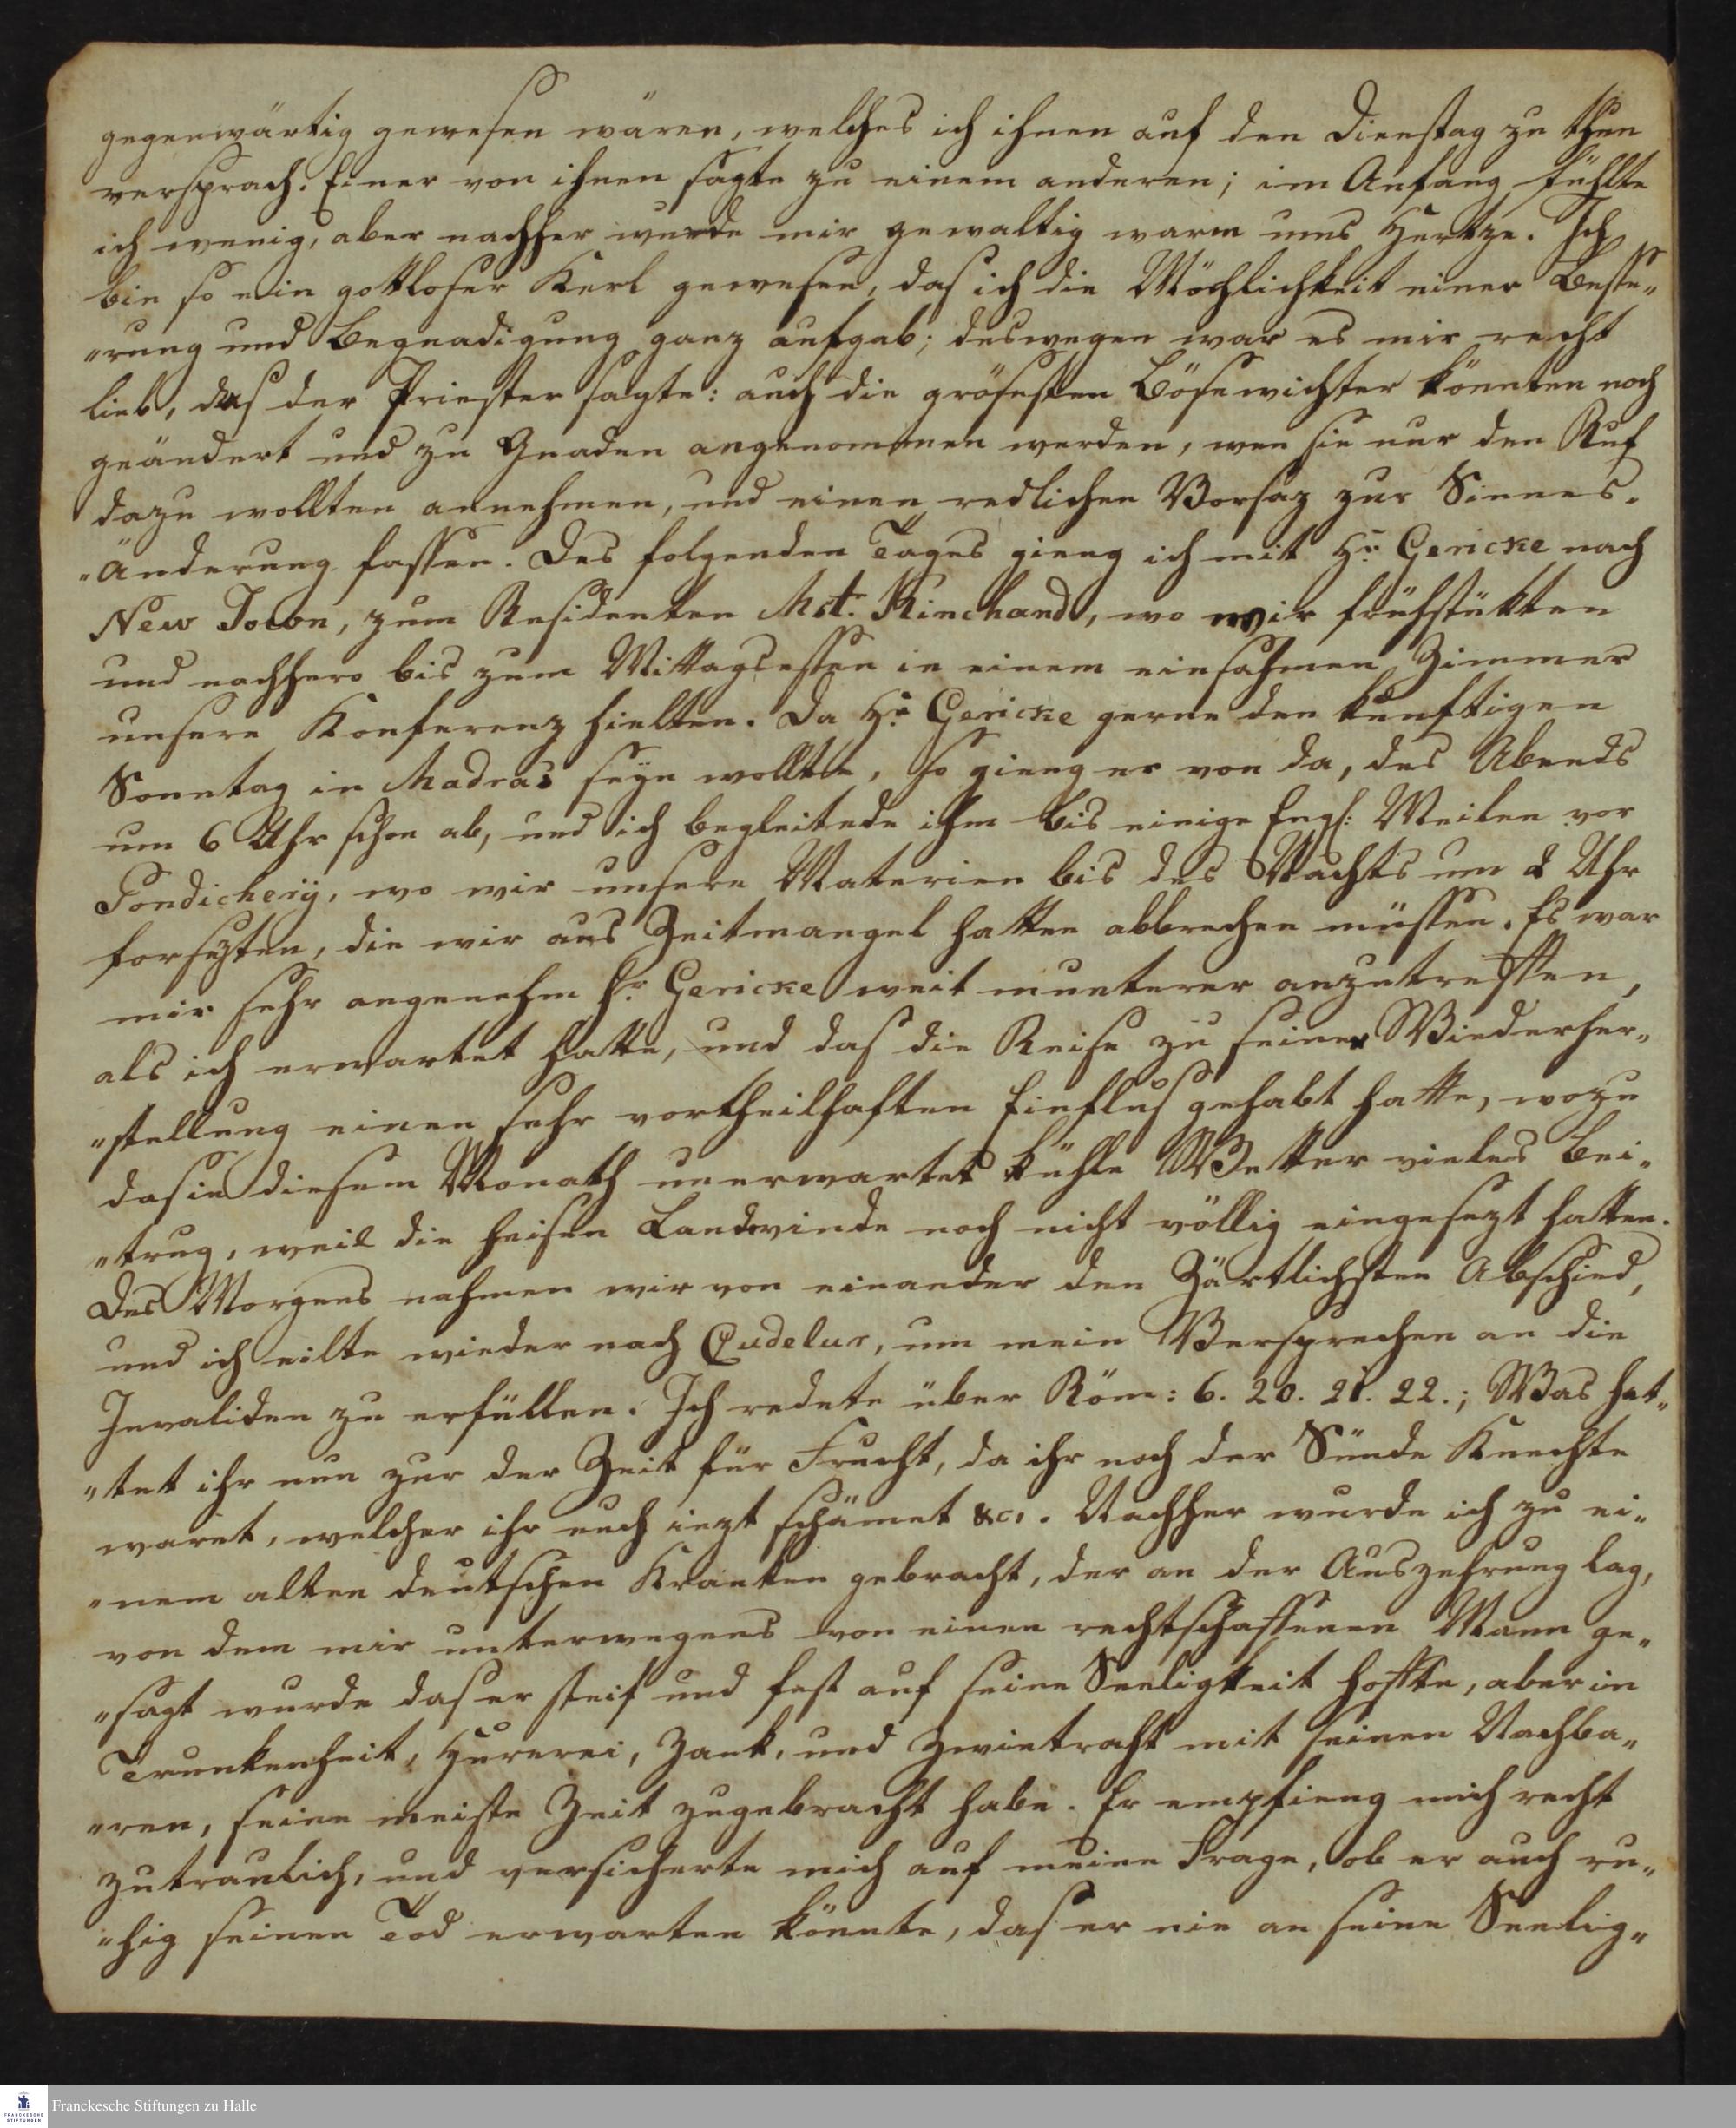 gegenwärtig gewesen wären, welches ich ihnen auf den Dienstag zu thun
versprach. Einer von ihnen sagte zu einem anderen; im Anfang fühlte
ich wenig, aber nachher wurde mir gewaltig warm ums Hertze. Ich
bin so ein gottloser Kerl gewesen, das ich die Möchlichkeit einer Besse„
„rung und Begnadigung ganz aufgab; deswegen war es mir recht
lieb, das der Priester sagte: auch die grösesten Bösewichter könnten noch
geändert und zu Gnaden angenommen werden, wen sie nur den Ruf
dazu wollten annehmen, und einen redlichen Vorsaz zur Sinnes„
„Änderung fassen. Des folgenden Tages gieng ich mit Hr. Gericke nach
New Town, zum Residenten Mstr. Kinchand, wo wir frühstükten
und nachhero bis zum Mittagsessen in einem einsahmen Zimmer
unsere Konferenz hielten. Da Hr. Gericke gerne den künftigen
Sonntag in Madras seÿn wollte, so gieng er von da, des Abends
um 6 Uhr schon ab, und ich begleitede ihm bis einige Engl: Meilen vor
Pondicherÿ, wo wir unsere Materien bis des Nachts um 2 Uhr
forsezten, die wir aus Zeitmangel hatten abbrechen müssen. Es war
mir sehr angenehm Hr. Gericke weit munterer anzutreffen,
als ich erwartet hatte, und das die Reise zu seiner Wiederher„
„stellung einen sehr vortheilhaften Einflus gehabt hatte, wozu
das in diesem Monath unerwartet kühle Wetter vieles bei„
„trug, weil die heisen Landwinde noch nicht völlig eingesezt hatten.
Des Morgens nahmen wir von einander den Zärtlichsten Abschied,
und ich eilte wieder nach Cudelur, um mein Versprechen an die
Invaliden zu erfüllen. Ich redete über Röm: 6. 20. 21. 22.; Was hat„
„tet ihr nun zur der Zeit für Frucht, da ihr noch der Sünde Knechte
waret, welcher ihr euch iezt schämet &c. Nachher wurde ich zu ei„
„nem alten deutschen Kranken gebracht, der an der Auszehrung lag,
von dem mir unterwegens von einen rechtschaffenen Mann ge„
„sagt wurde das er steif und fest auf seine Seeligkeit hoffte, aber in
Trunkenheit, Hurerei, Zank, und Zwietracht mit seinen Nachba„
„ren, seine meiste Zeit zugebracht habe. Er empfieng mich recht
zutraulich, und versicherte mich auf meine Frage, ob er auch ru„
„hig seinen Tod erwarten könnte, das er nie an seine Seelig„
FRANCKESCHE
STIFTUNGEN
Franckesche Stiftungen zu Halle